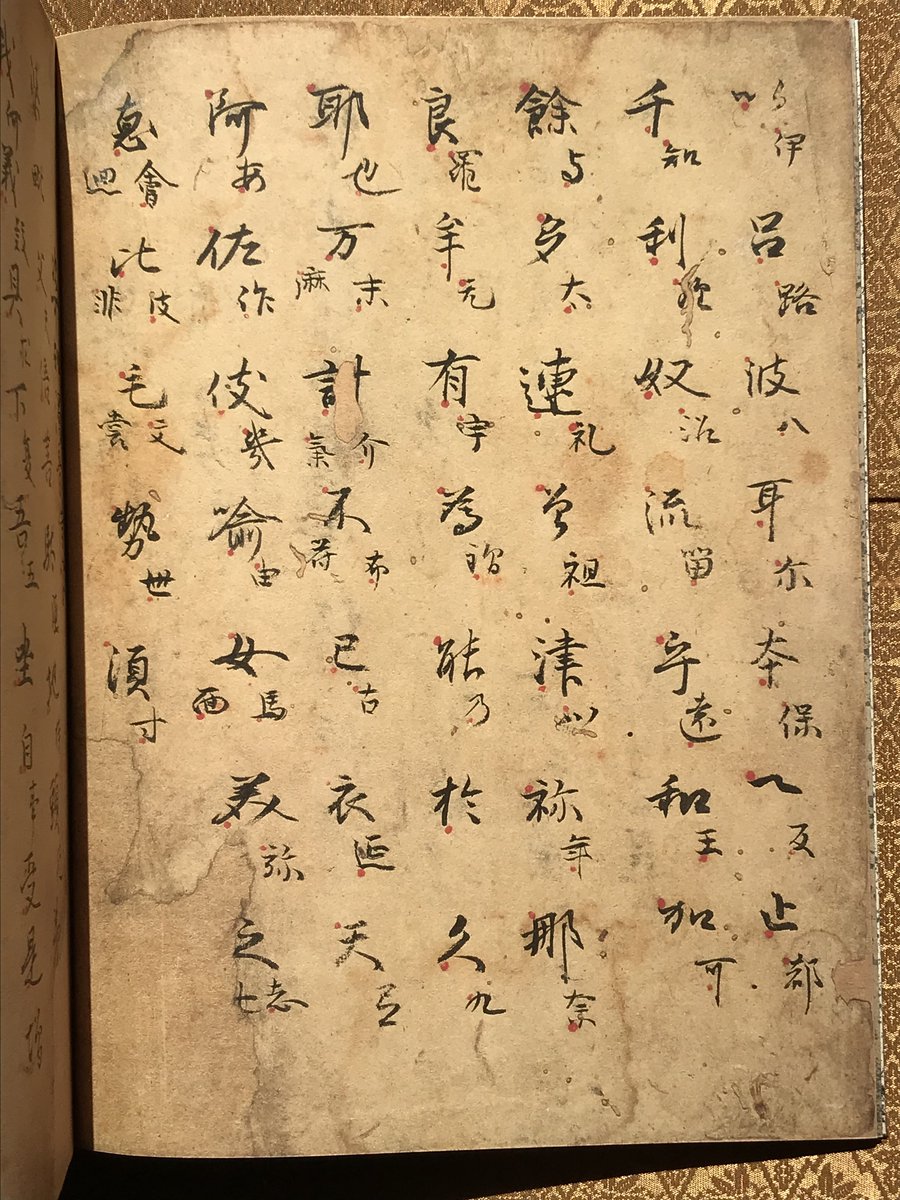 以伊呂路波八耳尓本保へ反止都
千知利理奴沼流留乎遠和王加可
餘与多太連礼曽祖津祢年那奈
良羅牟无有宇為謂能乃於久九
耶也万末麻計介氣不布符己古衣延天弖
阿安佐作伎幾喩由女馬面美弥之志士
恵會廻比皮非毛文裳勢世須寸